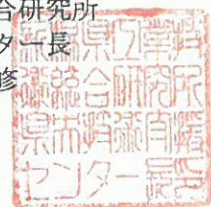 合研究所
ター長
修
新潟県工業技
術総合研究所
県央技術支援
センター長印